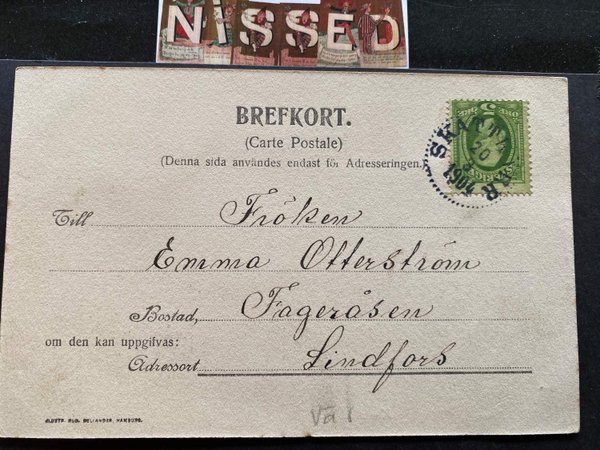 NISSED
BREFKORT.
(Carte Postale)
(Denna sida användes endast för Adresseringen.)
SKATTKÄRR
1904
Till Fröken
Emma Otterström
Bostad, Fageråsen
om den kan uppgifvas:
Adressort Lindfors
Vä